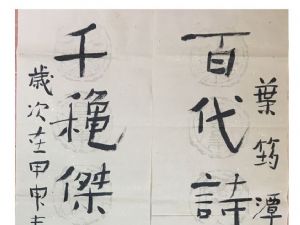 葉筠潭
百代詩
千穐傑
歲次在甲申